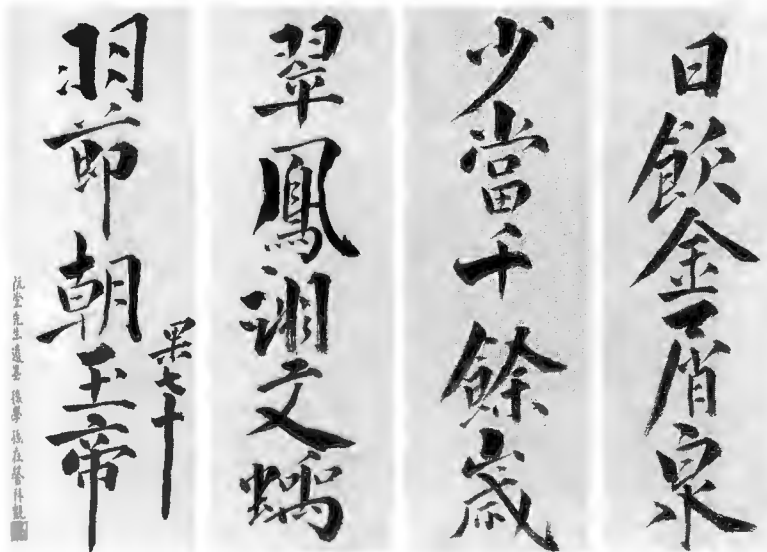 日飲金屑泉
少當千餘歲
翠鳳翊文螭
羽節朝玉帝
果七十
阮堂先生遺墨 後學 孫在馨拜觀